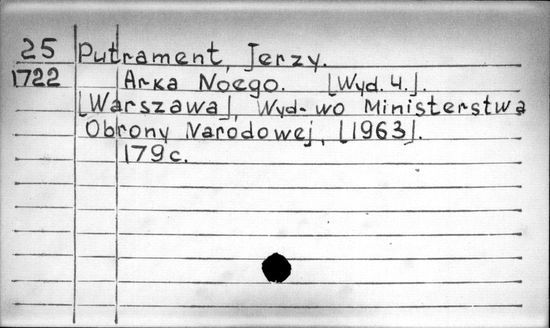 25 Putrament, Jerzy.
1722 Arka Noego. [Wyd. 4.].
[Warszawa], Wyd-wo Ministerstwa
Obrony Narodowej, [1963].
179 c.